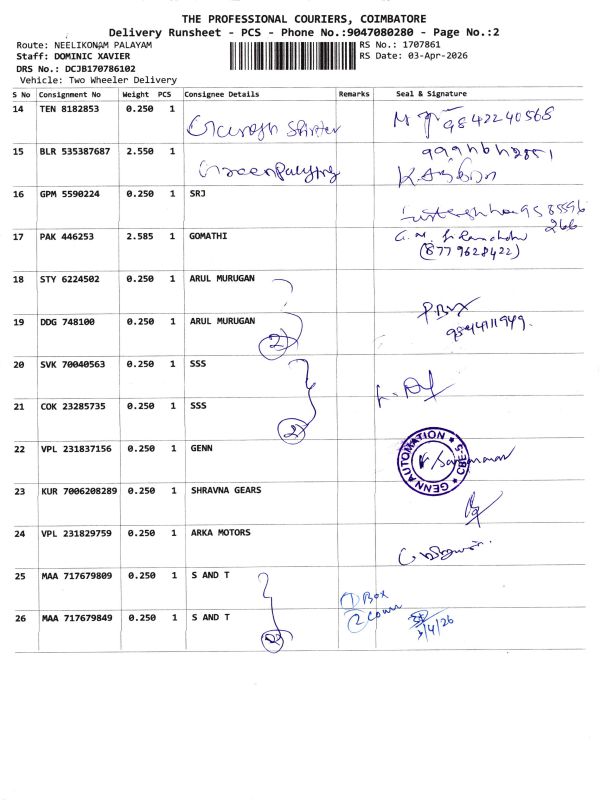 THE PROFESSIONAL COURIERS, COIMBATORE
Delivery Runsheet - PCS - Phone No.:9047080280 - Page No.:2
Route: NEELIKONAM PALAYAM
RS No.: 1707861
Staff: DOMINIC XAVIER
RS Date: 03-Apr-2026
DRS No.: DCJB170786102
Vehicle: Two Wheeler Delivery
S No Consignment No Weight PCS Consignee Details Remarks Seal & Signature
14 TEN 8182853 0.250 1 9842240568
15 BLR 535387687 2.550 1
16 GPM 5590224 0.250 1 SRJ
17 PAK 446253 2.585 1 GOMATHI
(8779628422)
18 STY 6224502 0.250 1 ARUL MURUGAN
19 DDG 748100 0.250 1 ARUL MURUGAN
2
20 SVK 70040563 0.250 1 SSS
21 COK 23285735 0.250 1 SSS
2
22 VPL 231837156 0.250 1 GENN
GENN AUTOMATION CBE-5
23 KUR 7006208289 0.250 1 SHRAVNA GEARS
24 VPL 231829759 0.250 1 ARKA MOTORS
25 MAA 717679809 0.250 1 S AND T
1 Box
26 MAA 717679849 0.250 1 S AND T
2 3/4/26
2